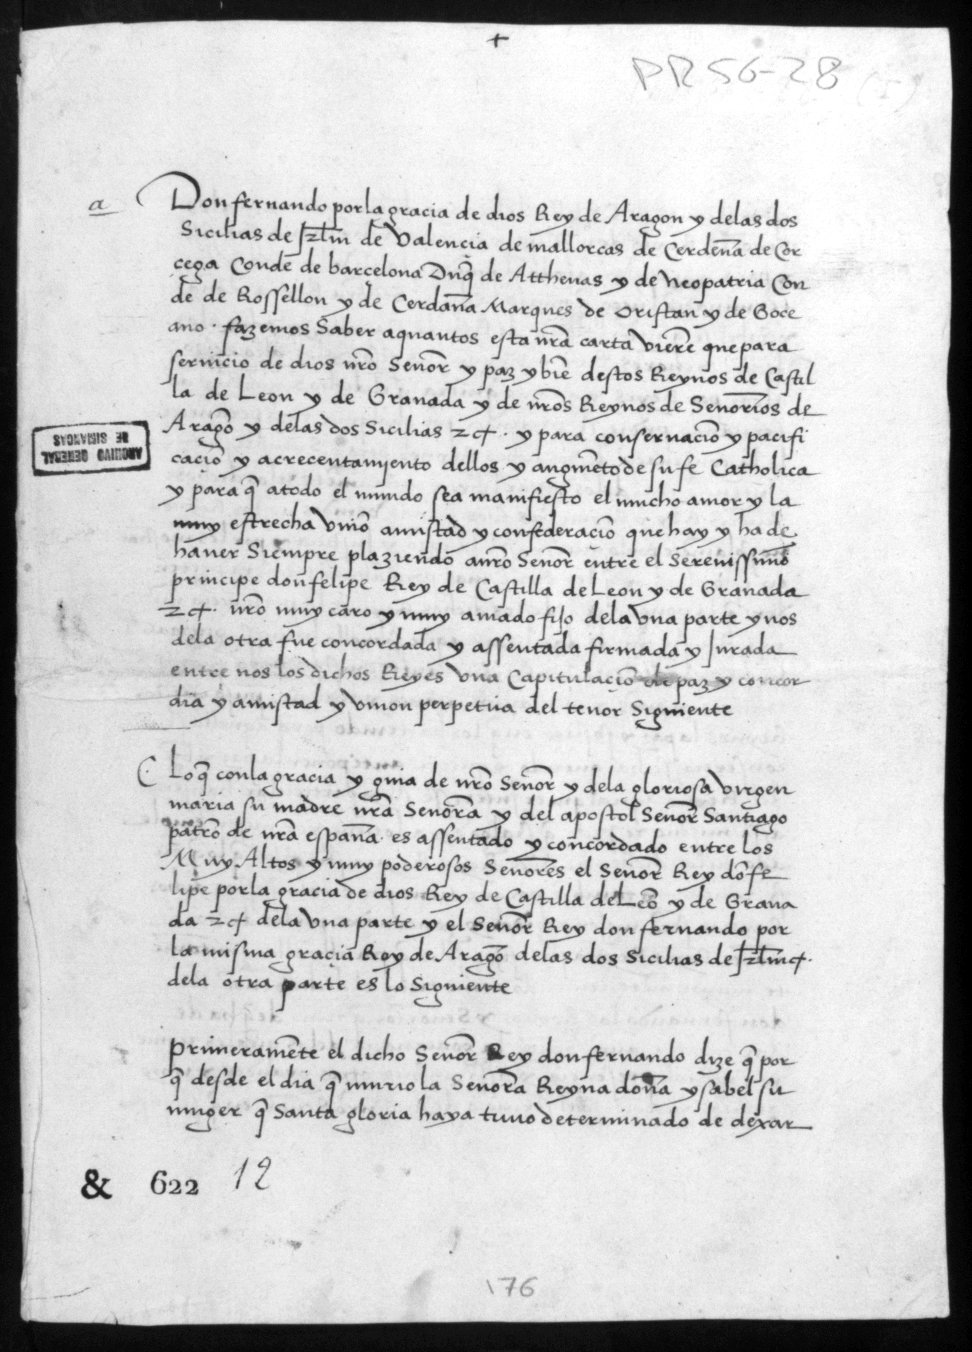 +
PR 56-28 (I)
a
Don fernando por la gracia de dios Rey de Aragon y de las dos
Sicilias de Jrlm de Valencia de mallorcas de Cerdeña de Cor
cega Conde de barcelona Duq̃ de Atthenas y de Neopatria Con
de de Rossellon y de Cerdaña Marques de Oristan y de Goce
ano · fazemos Saber a quantos esta nr̃a carta vierẽ que para
seruicio de dios nr̃o Señor y paz y biẽ destos Reynos de Castil
la de Leon y de Granada y de nr̃os Reynos de Señorios de
Aragõ y de las dos Sicilias ⁊c̃ · y para conseruaciõ y pacifi
caciõ y acrecentamjento dellos y augmẽto de su fe Catholica
y para q̃ a todo el mundo sea manifiesto el mucho amor y la
muy estrecha vniõ amistad y confederaciõ que hay y ha de
hauer Siempre plaziendo a nr̃o Señor entre el Serenissimo
principe don felipe Rey de Castilla de Leon y de Granada
⁊c̃ · nr̃o muy caro y muy amado fijo de la vna parte y nos
dela otra fue concordada y assentada firmada y Jurada
entre nos los dichos Reyes vna Capitulaciõ de paz y concor
dia y amistad y vnion perpetua del tenor Siguiente
Lo q̃ con la gracia y guia de nr̃o Señor y dela gloriosa virgen
maria su madre nr̃a Señora y del apostol Señor Santiago
patrõ de nr̃a españa · es assentado y concordado entre los
Muy Altos y muy poderosos Señores el Señor Rey dõ fe
lipe por la gracia de dios Rey de Castilla de Leõ y de Grana
da ⁊c̃ dela vna parte y el Señor Rey don fernando por
la misma gracia Rey de Aragõ delas dos Sicilias de Jrlm ⁊c̃ ·
dela otra parte es lo Siguiente
primeramẽte el dicho Señor Rey don fernando dize q̃ por
q̃ desde el dia q̃ murio la Señora Reyna doña ysabel su
muger q̃ Santa gloria haya tuuo determinado de dexar
ARCHIVO GENERAL
DE SIMANCAS
& 622 12
176